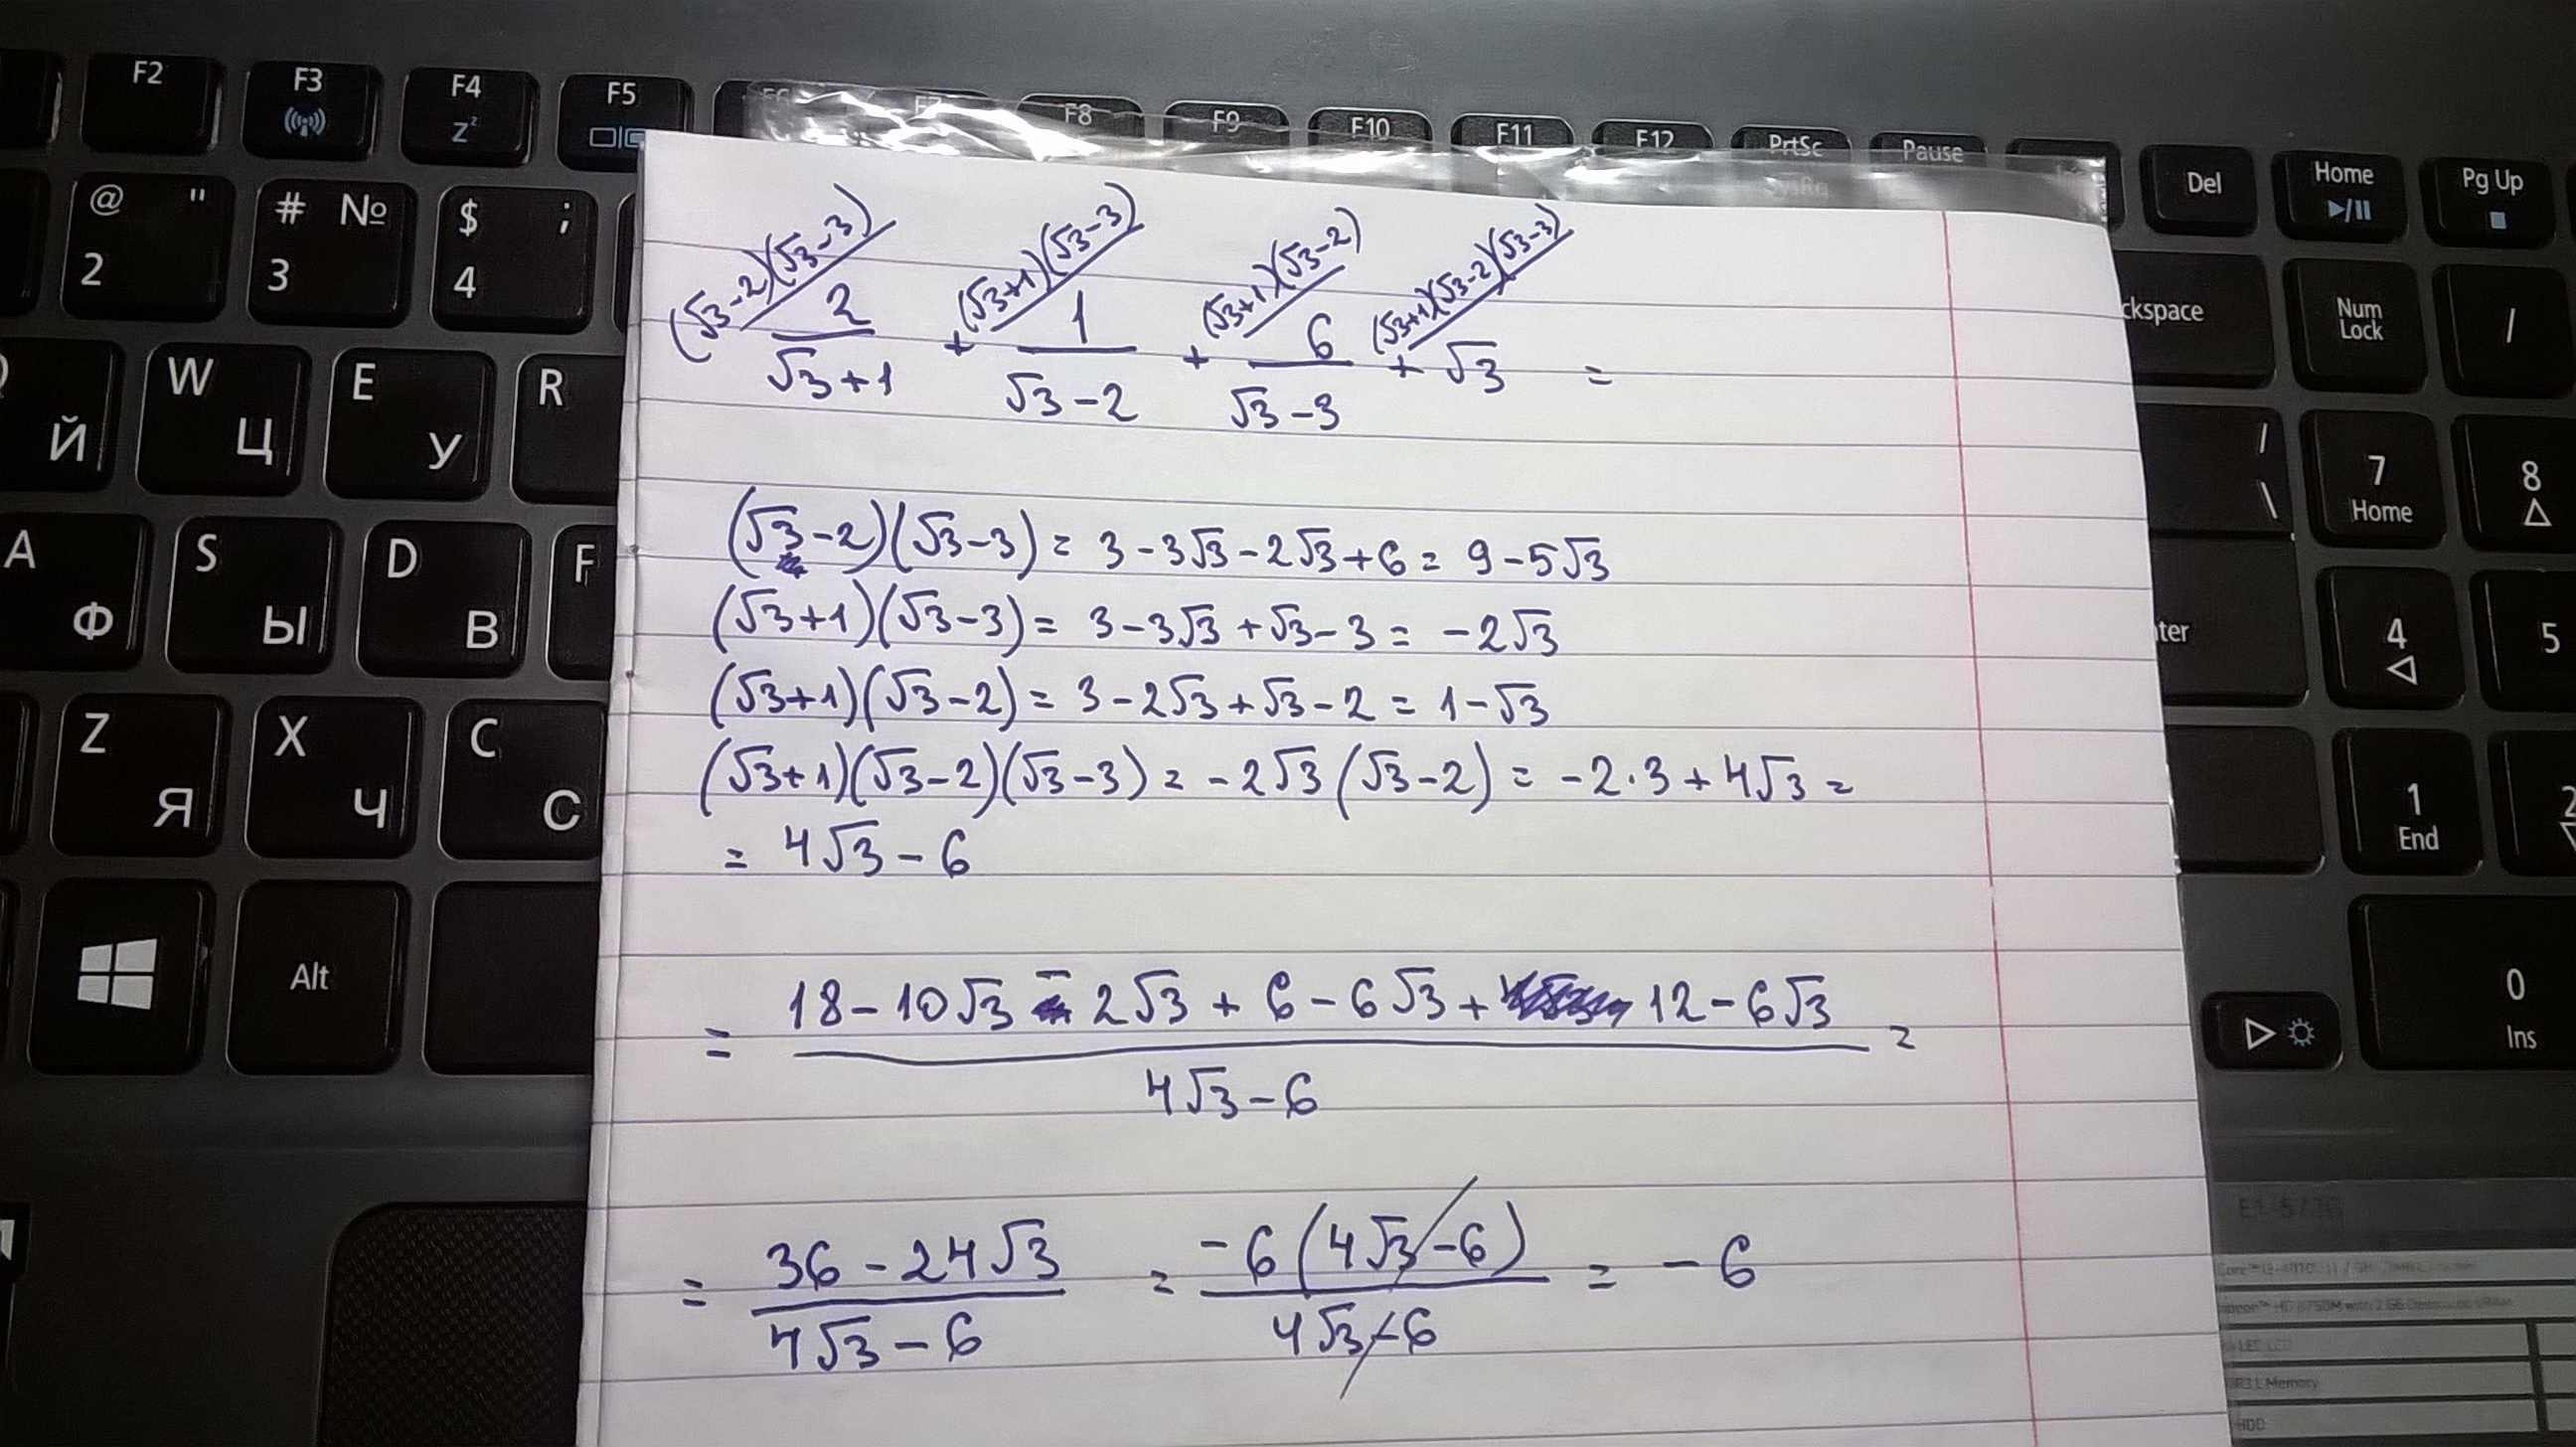 F2 F3 F4 F5 F8 F9 F10 F11 F12 PrtSc Pause Del Home Pg Up
Zz SysRq
@ " # № $ ;
2 3 4
ckspace Num Lock /
W E R
Й Ц У
/ \ 7 Home 8
A S D F
Ф Ы В
ter 4 5
Z X C
Я Ч С
1 End 2
Alt
0 Ins
(√3-2)(√3-3) (√3+1)(√3-3) (√3+1)(√3-2) (√3+1)(√3-2)(√3-3)
2/(√3+1) + 1/(√3-2) + 6/(√3-3) + √3 =
(√3-2)(√3-3) = 3-3√3-2√3+6 = 9-5√3
(√3+1)(√3-3) = 3-3√3+√3-3 = -2√3
(√3+1)(√3-2) = 3-2√3+√3-2 = 1-√3
(√3+1)(√3-2)(√3-3) = -2√3(√3-2) = -2·3+4√3 =
= 4√3-6
= (18-10√3-2√3+6-6√3+12-6√3)/(4√3-6) =
= (36-24√3)/(4√3-6) = -6(4√3-6)/(4√3-6) = -6
Memory
HDD